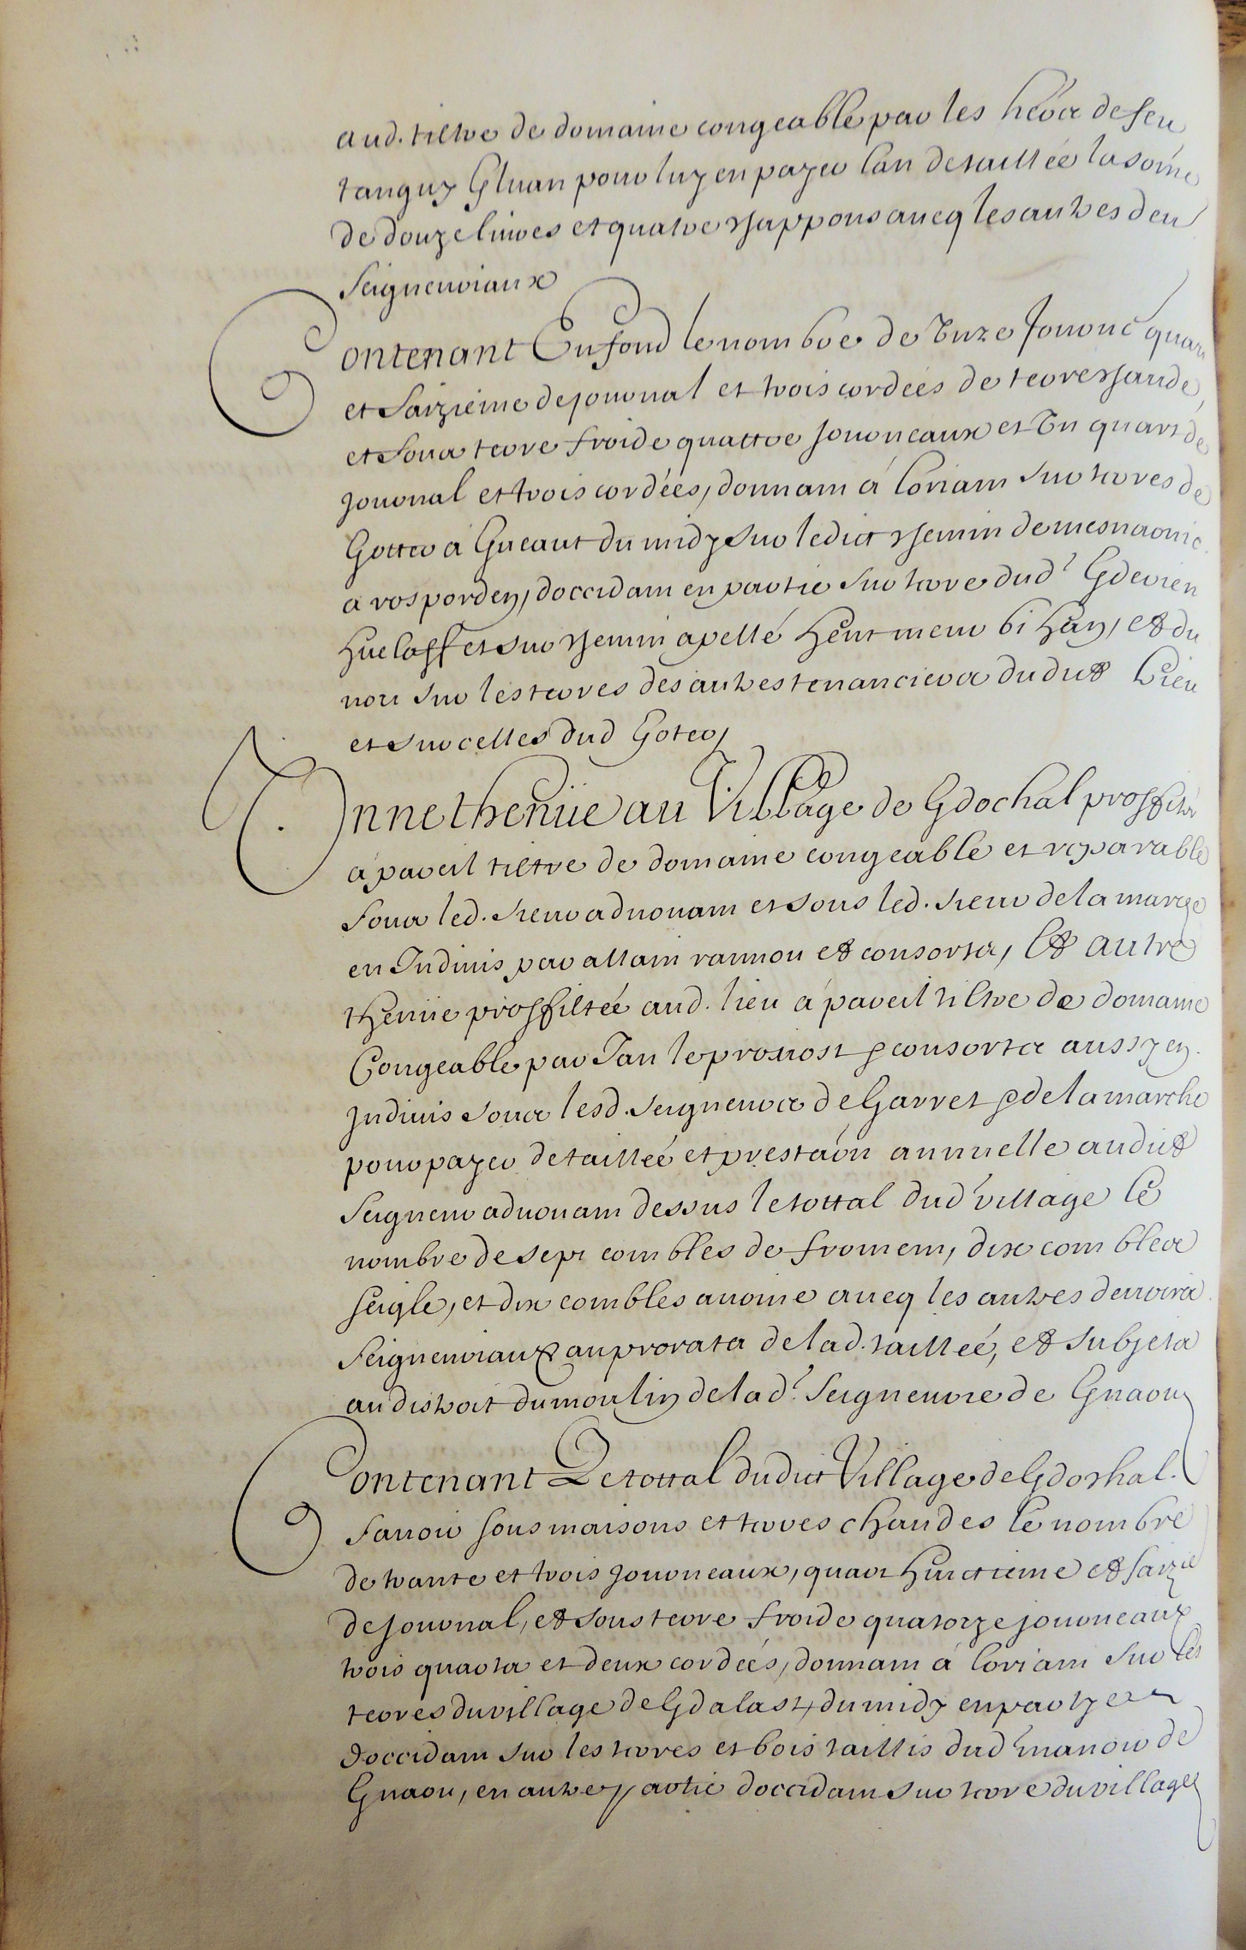 aud. tiltre de domaine congeable par les hers de feu
tanguy Gluan pour luy en payer lan de taillée la some
de douze livres et quatre chappons avecq les autres deu
seigneuriaux
Contenant En fond le nombre de Unze Jouro quart
et saizieme de jouonal et trois cordées de terre chaude,
et sous terre froide quattre jouoneaux et Un quart de
jouonal et trois cordées, donnam á loriam sur terres de
Gotter á Gueaut du midy sur ledict chemin de mesnaonic
a rosporden, doccidam en partie sur terre dud Gderien
huelaff et sur chemin apellé hent meur bihan, et du
nort sur les terres des autres tenanciers dudict lieu
et sur celles dud Goter,
Unne thenüe au Village de Gdochal proffité
á pareil tiltre de domaine congeable et reparable
sous led. sieur advouam et sous led. sieur de la marche
en Indivis par allain rannou et consorts, Et autre
thenüe proffittée aud. lieu á pareil tiltre de domaine
Congeable par Jan le provost & consorts aussy en
Indivis sous lesd. seigneurs de Garret & de la marche
pour payer de taillée et prestaon annuelle audict
seigneur advouam dessus le tottal dud village le
nombre de sept combles de fromem, dix combles
seigle, et dix combles avoine avecq les autres devoirs
seigneuriaux au prorata de lad. taillée, et subjets
au distroit du moulin de lad seigneurie de Gnaou
Contenant Le tottal dudict Village de Gdoshal.
savoir sous maisons et terres chaudes le nombre
de trante et trois jouoneaux, quart huictieme et saizie
de jouonal, et sous terre froide quatorze jouoneaux
trois quarts et deux cordées, donnam á loriam sur les
terres du village de Gdalast, du midy en partye et
doccidam sur les terres et bois taillis dud manoir de
Gnaou, en autre partie doccidam sur terre du village